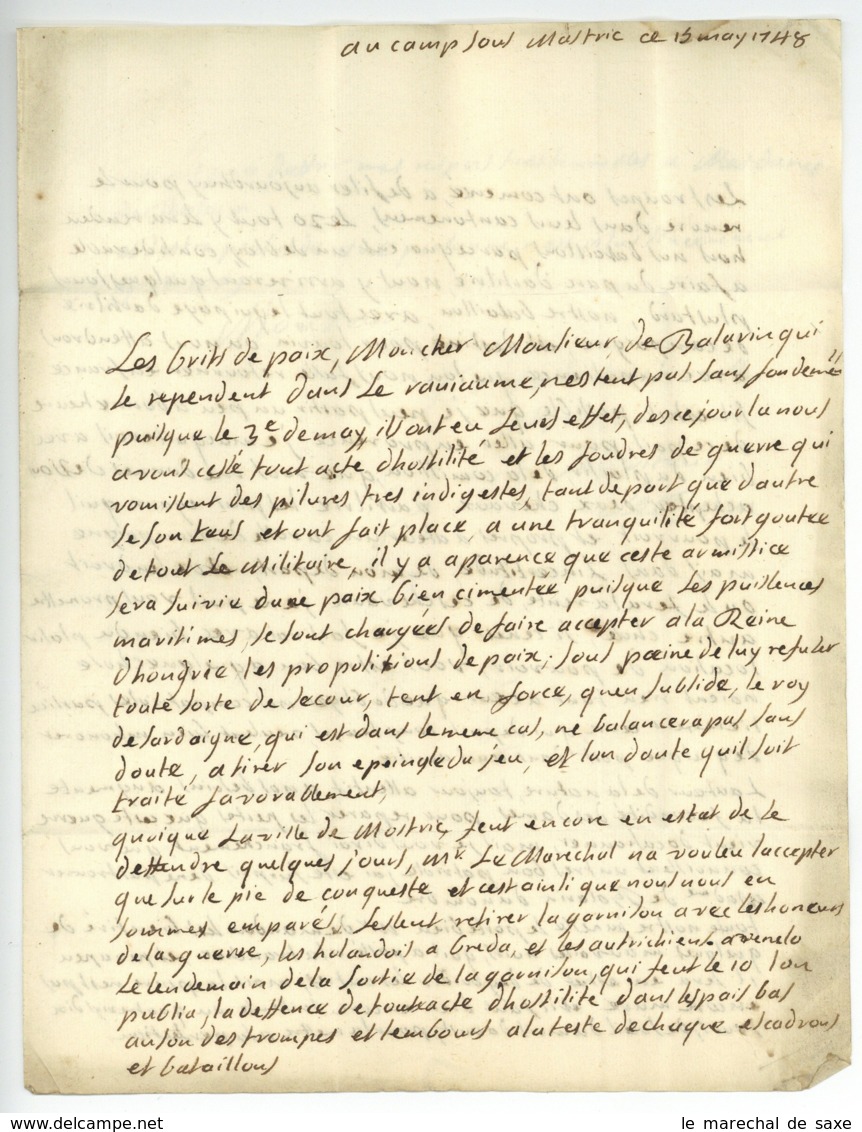 au camp sous Mastric ce 15 may 1748
Les bruits de paix, Moncher Monsieur, de Balarin qui
se rependent dans Le raviaume, nestent pas sans fondemts
puisque le 3e demay, il ont eu leurs effet, des ce jour la nous
avons cessé tout acte dhostilité et les foudres de guerre qui
vomissent des pilures tres indigestes, tant depart que dautre
se son teus et ont fait place, a une tranquilité fort goutee
detout Le Militaire, il y a aparence que ceste armistice
sera suivie dune paix bien cimentée puisque Les puissences
maritimes, se sont chargées de faire accepter ala Reine
dhongrie les propositions depaix, sous paeine de luy refuser
toute sorte de secour, tent en force, quen subside, le roy
desardaigne, qui est dans lememe cas, ne balancera pas sans
doute, a tirer son epeingle du jeu, et lon doute quil soit
traité favorablement,
quoique La ville de Mostric feut encore en estat de se
deffendre quelques jours, mr Le Marechal na vouleu laccepter
que sur le pie de conqueste et cest ainsi que nous nous en
sommes emparés, Les leut retirer la garnison avec les honeurs
de la guerre, les holandois a breda, et les autrichiens a venelo
Le lendemain de la sortie de la garnison, qui feut le 10 lon
publia, la deffence de toute acte dhostilité dans les pais bas
au son des trompes et tembours a la teste de chaque escadrons
et bataillons
le marechal de saxe